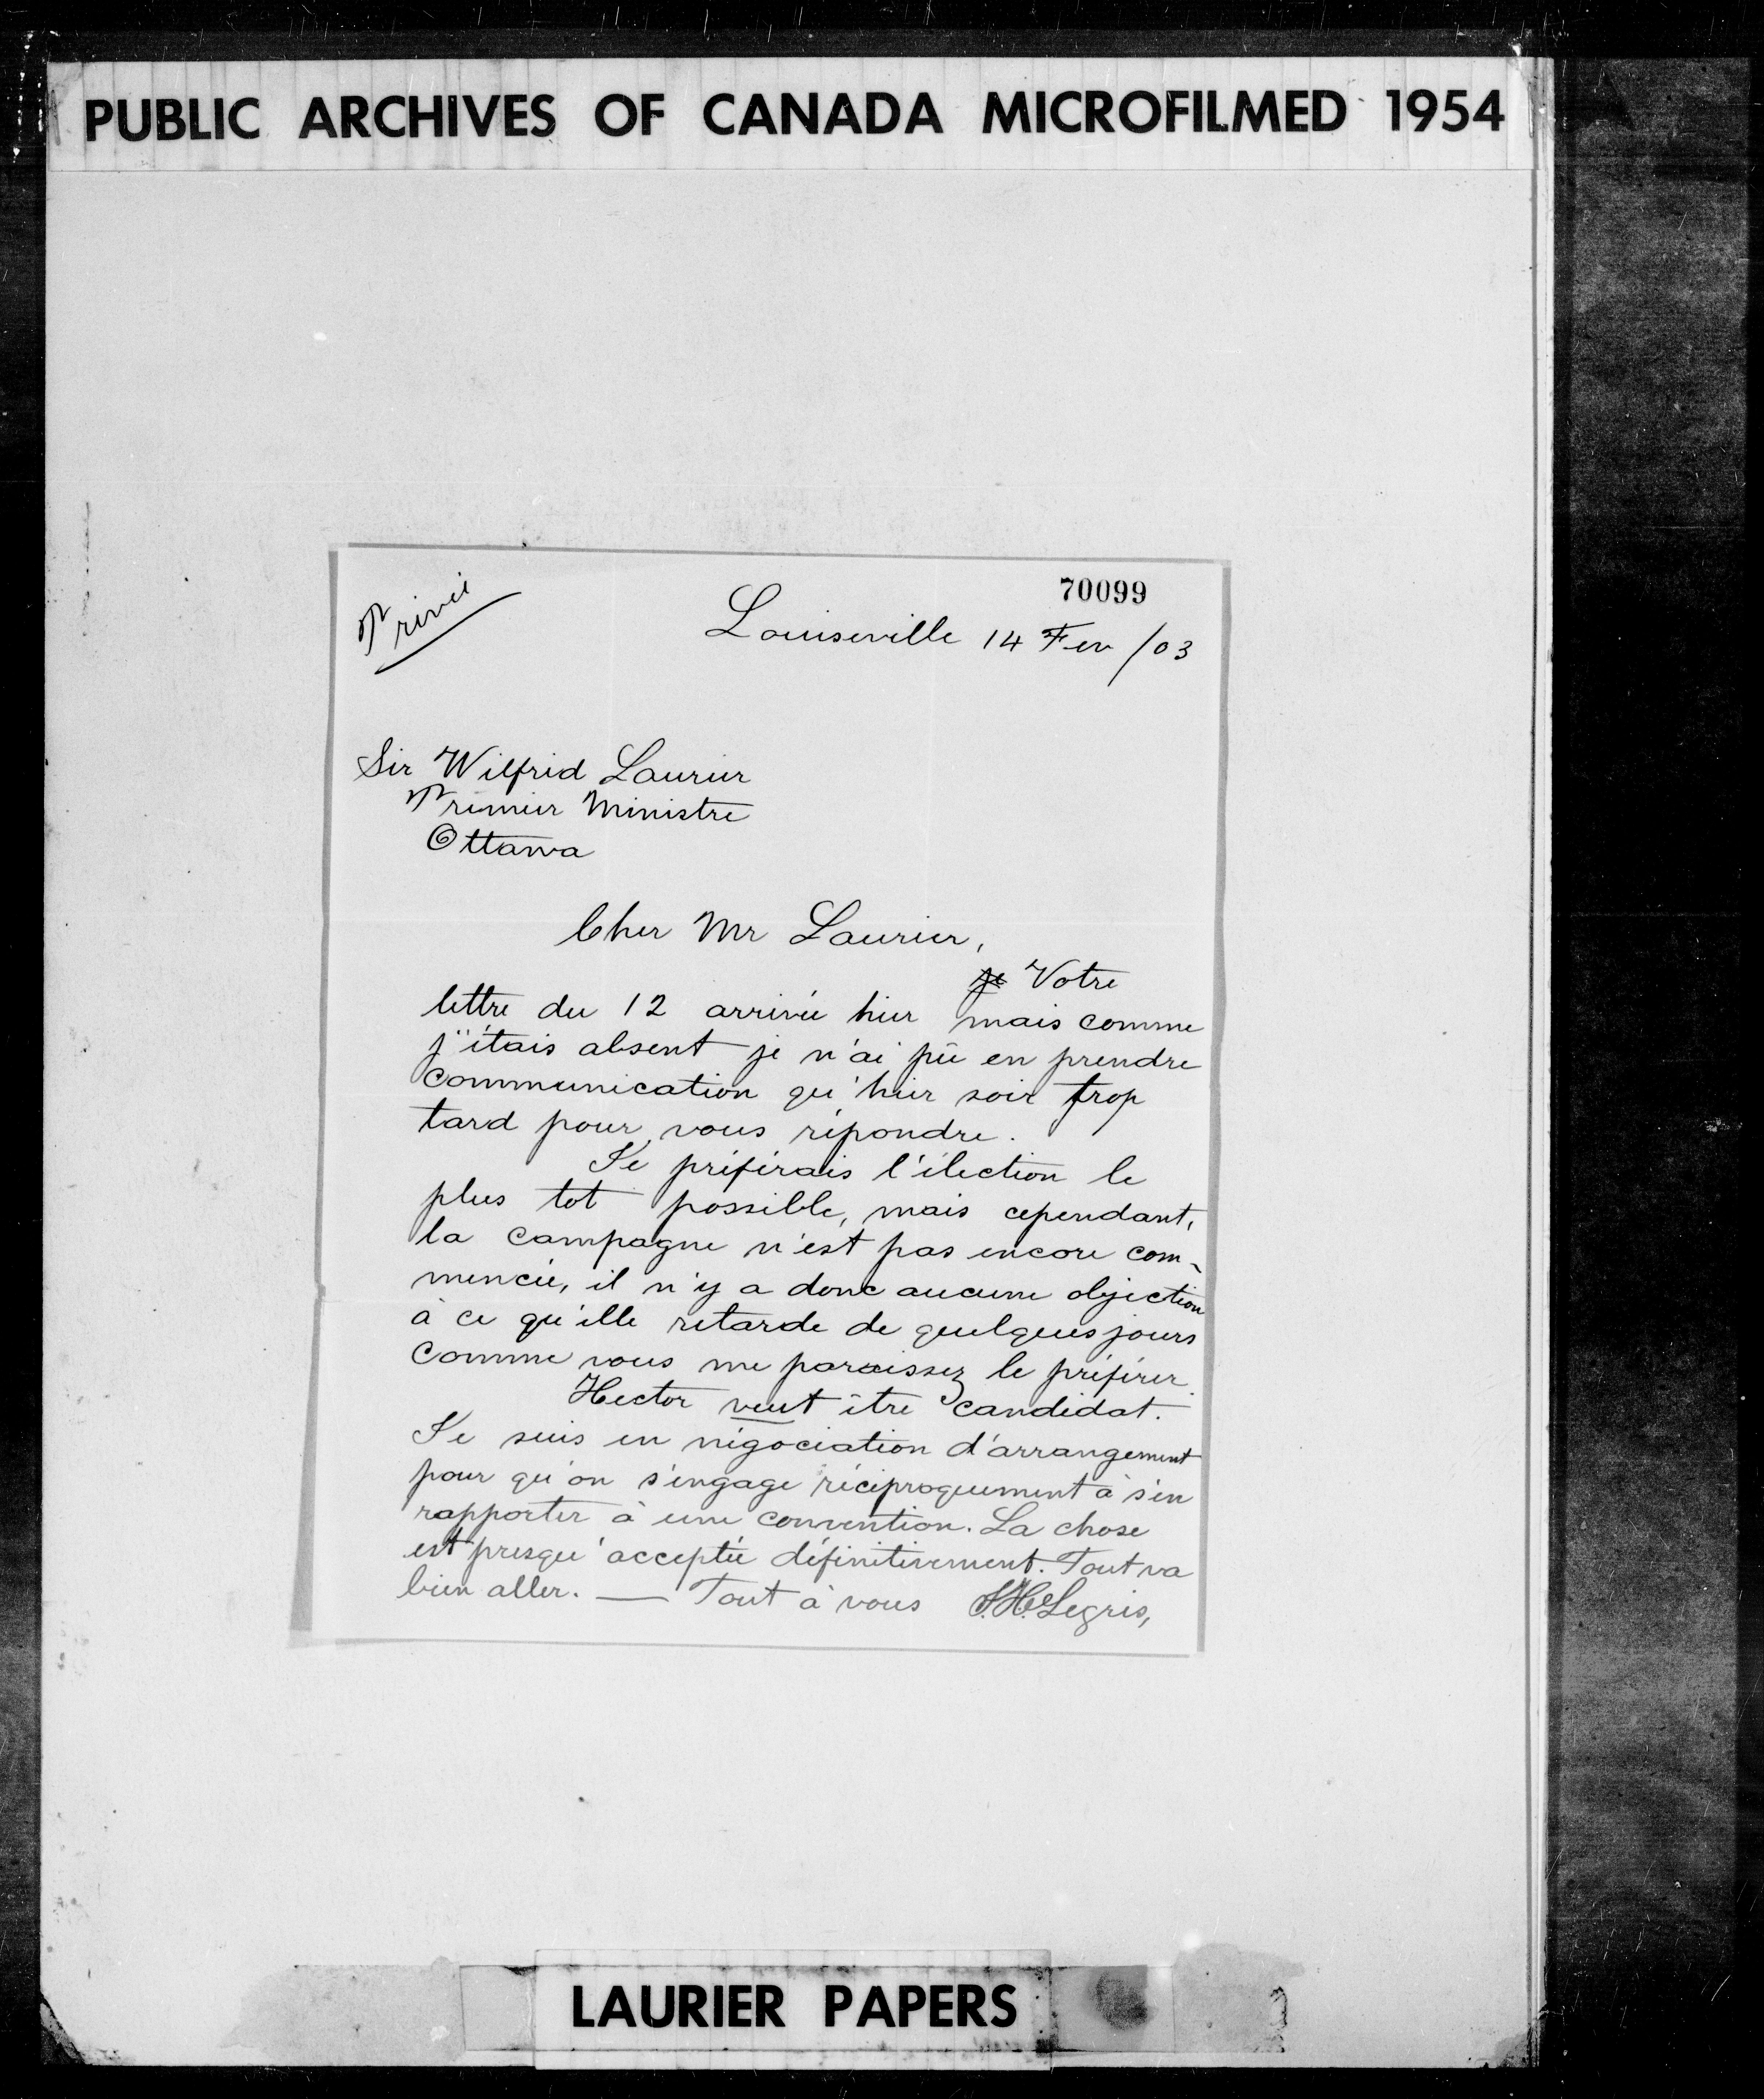 PUBLIC ARCHIVES OF CANADA MICROFILMED 1954
70099
Privée
Louiseville 14 Fev /03
Sir Wilfrid Laurier
Premier Ministre
Ottawa
Cher Mr Laurier,
je Votre
lettre du 12 arrivée hier mais comme
j'étais absent je n'ai pû en prendre
communication qu'hier soir trop
tard pour vous répondre.
Je préférais l'élection le
plus tot possible, mais cependant,
la campagne n'est pas encore com-
mencée, il n'y a donc aucune objection
à ce qu'elle retarde de quelques jours
comme vous me paraissez le préférer.
Hector veut être candidat.
Je suis en négociation d'arrangement
pour qu'on s'engage réciproquement à s'en
rapporter à une convention. La chose
est presqu'acceptée définitivement. Tout va
bien aller. — Tout à vous J.H. Legris,
LAURIER PAPERS